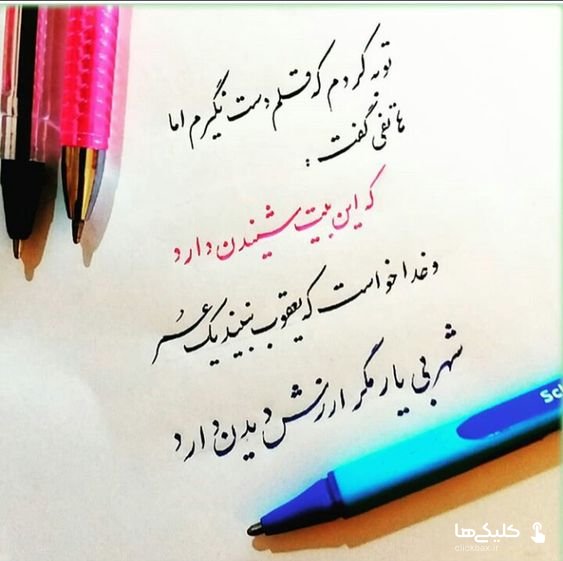 توبه کردم که قلم دست نگیرم اما
هاتفی گفت :
که این بیت شنیدن دارد
و خدا خواست که یعقوب نبیند یک عُمر
شهر بی یار مگر ارزش دیدن دارد
Sc
کلیکی‌ها
clickbox.ir